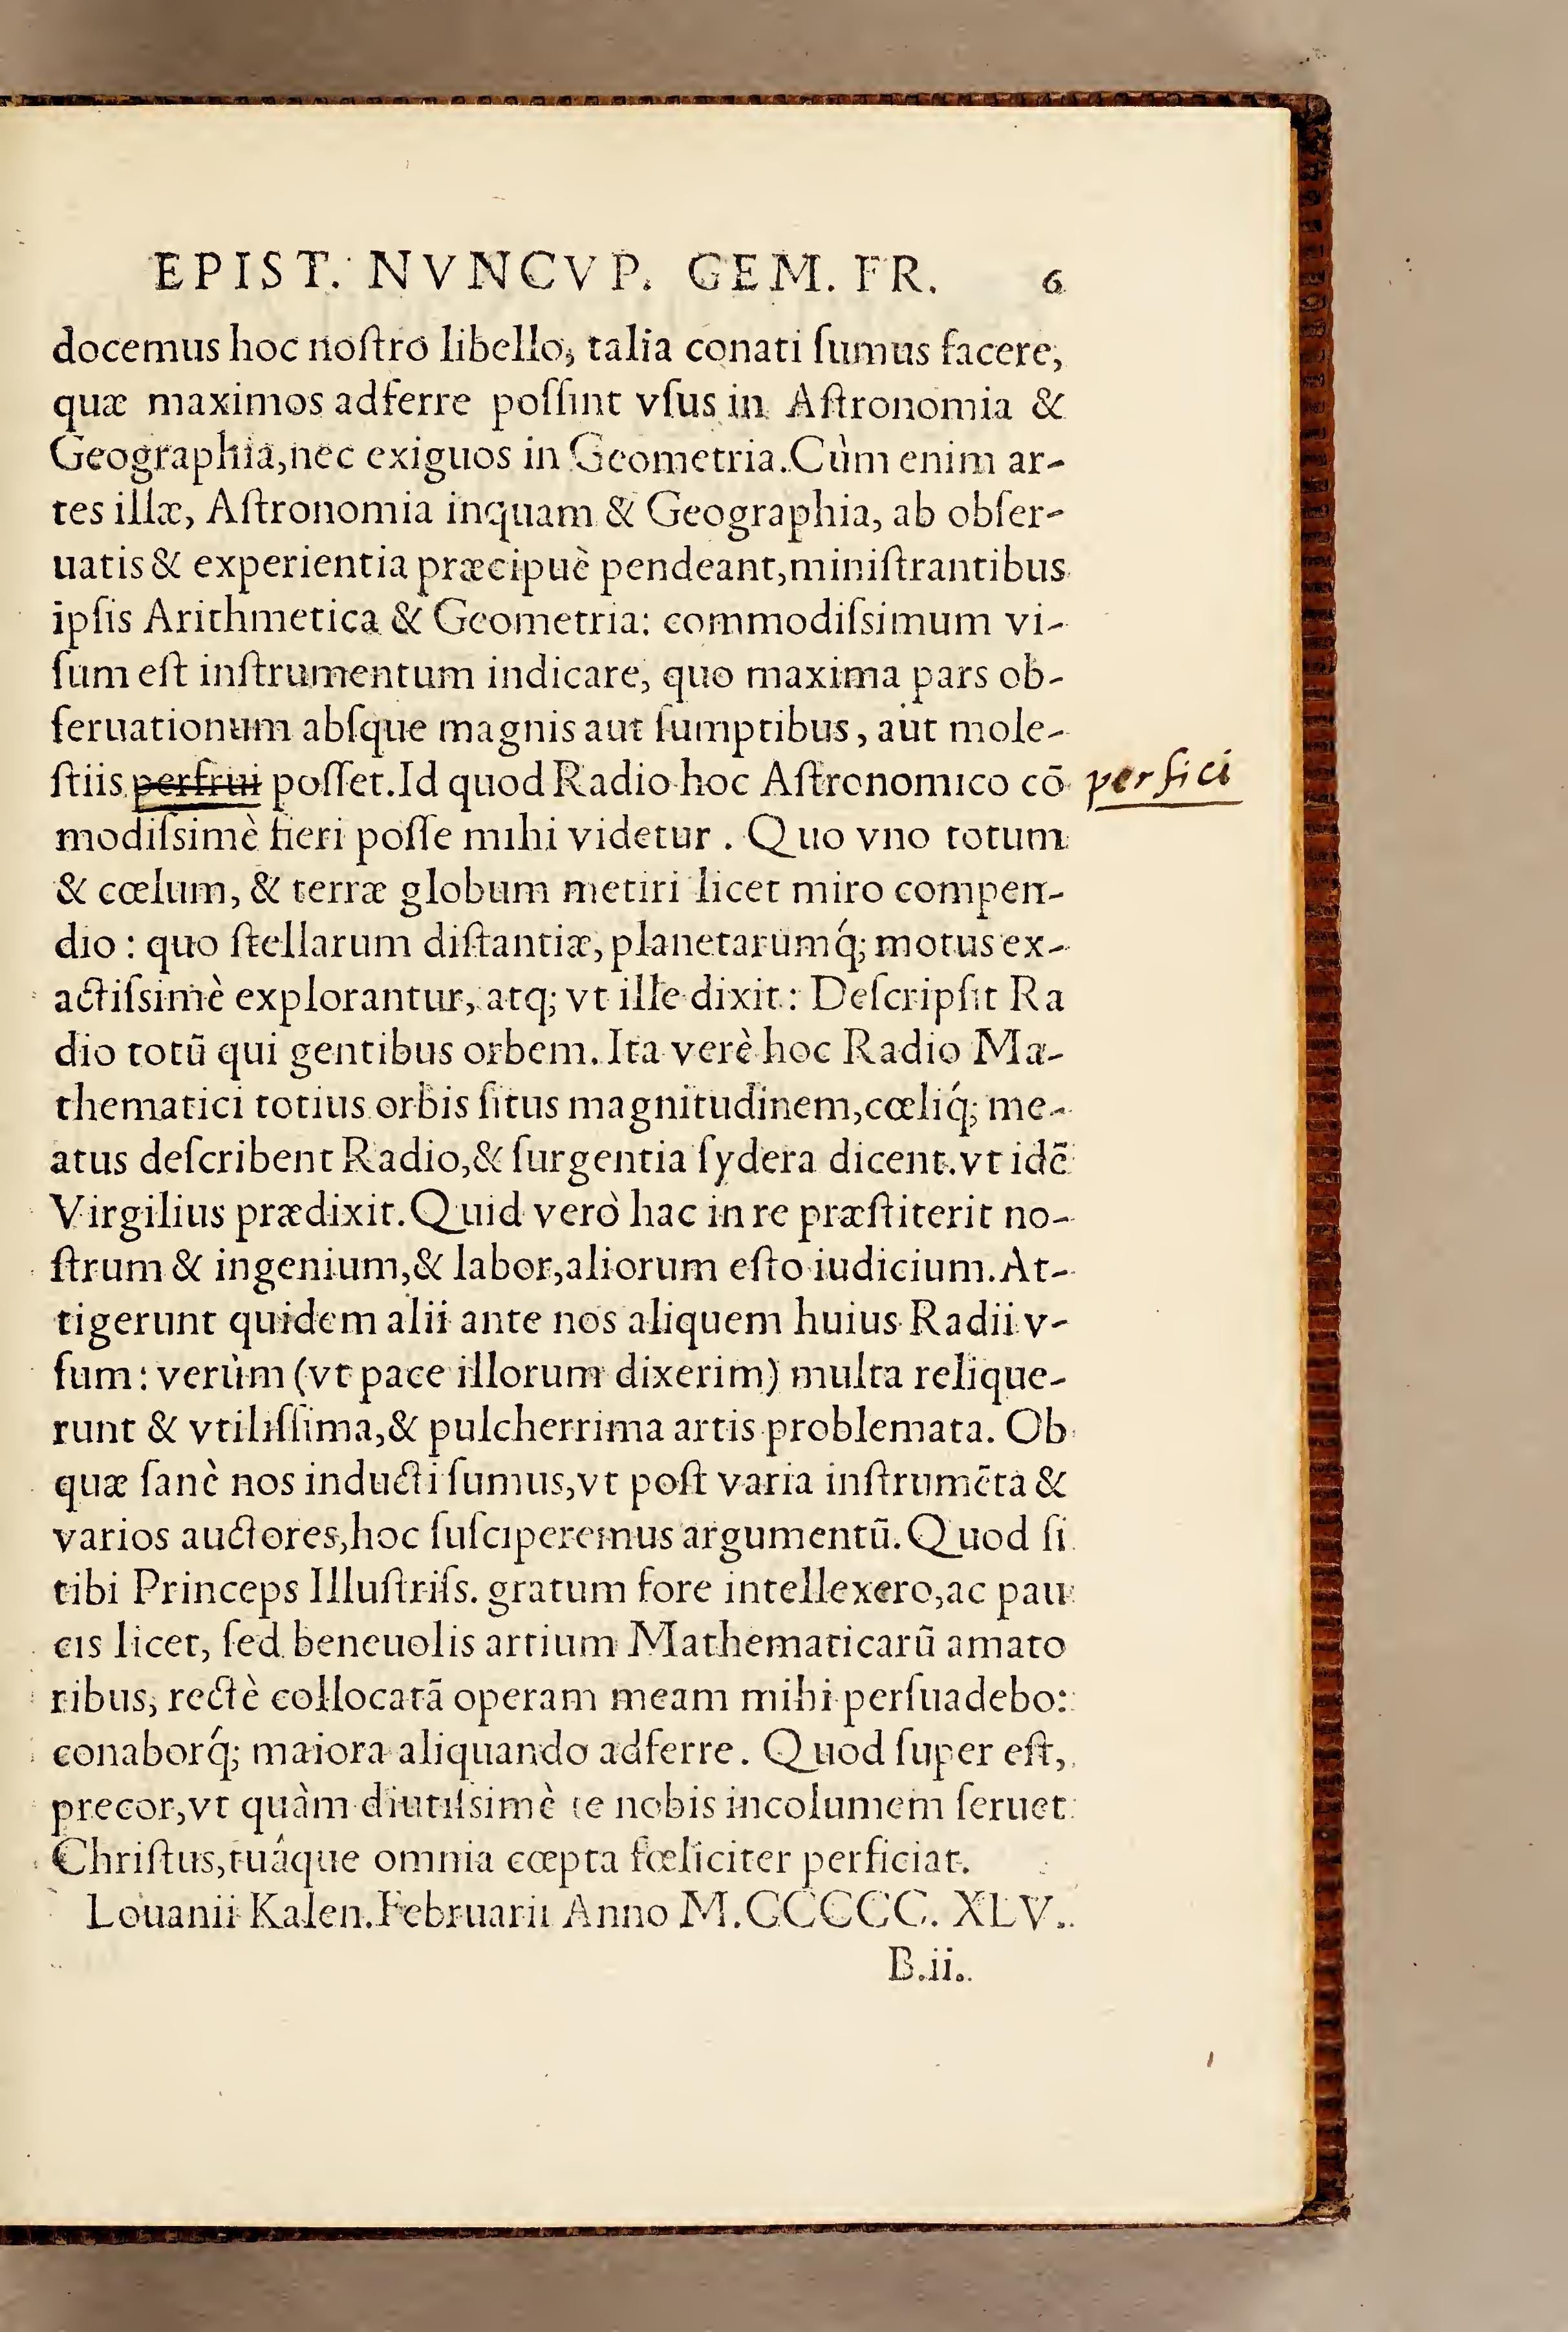 EPIST. NVNCVP. GEM. FR. 6
docemus hoc noſtro libello, talia conati ſumus facere,
quæ maximos adferre poſſint vſus in Aſtronomia &
Geographia, nec exiguos in Geometria. Cùm enim ar-
tes illæ, Aſtronomia inquam & Geographia, ab obſer-
uatis & experientia præcipuè pendeant, miniſtrantibus
ipſis Arithmetica & Geometria: commodiſsimum vi-
ſum eſt inſtrumentum indicare, quo maxima pars ob-
ſeruationum abſque magnis aut ſumptibus, aut mole-
ſtiis perfrui poſſet. Id quod Radio hoc Aſtronomico cō perfici
modiſsimè fieri poſſe mihi videtur. Quo vno totum
& cœlum, & terræ globum metiri licet miro compen-
dio: quo ſtellarum diſtantiæ, planetarumq́; motus ex-
actiſsimè explorantur, atq; vt ille dixit: Deſcripſit Ra
dio totū qui gentibus orbem. Ita verè hoc Radio Ma-
thematici totius orbis ſitus magnitudinem, cœliq́; me-
atus deſcribent Radio, & ſurgentia ſydera dicent. vt idē
Virgilius prædixit. Quid verò hac in re præſtiterit no-
ſtrum & ingenium, & labor, aliorum eſto iudicium. At-
tigerunt quidem alii ante nos aliquem huius Radii v-
ſum: verùm (vt pace illorum dixerim) multa relique-
runt & vtiliſſima, & pulcherrima artis problemata. Ob
quæ ſanè nos inducti ſumus, vt poſt varia inſtrumēta &
varios auctores, hoc ſuſciperemus argumentū. Quod ſi
tibi Princeps Illuſtriſs. gratum fore intellexero, ac pau
cis licet, ſed beneuolis artium Mathematicarū amato
ribus, rectè collocatā operam meam mihi perſuadebo:
conaborq́; maiora aliquando adferre. Quod ſuper eſt,
precor, vt quàm diutiſsimè te nobis incolumem ſeruet
Chriſtus, tuáque omnia cœpta fœliciter perficiat.
Louanii Kalen. Februarii Anno M.CCCCC. XLV.
B.ii.